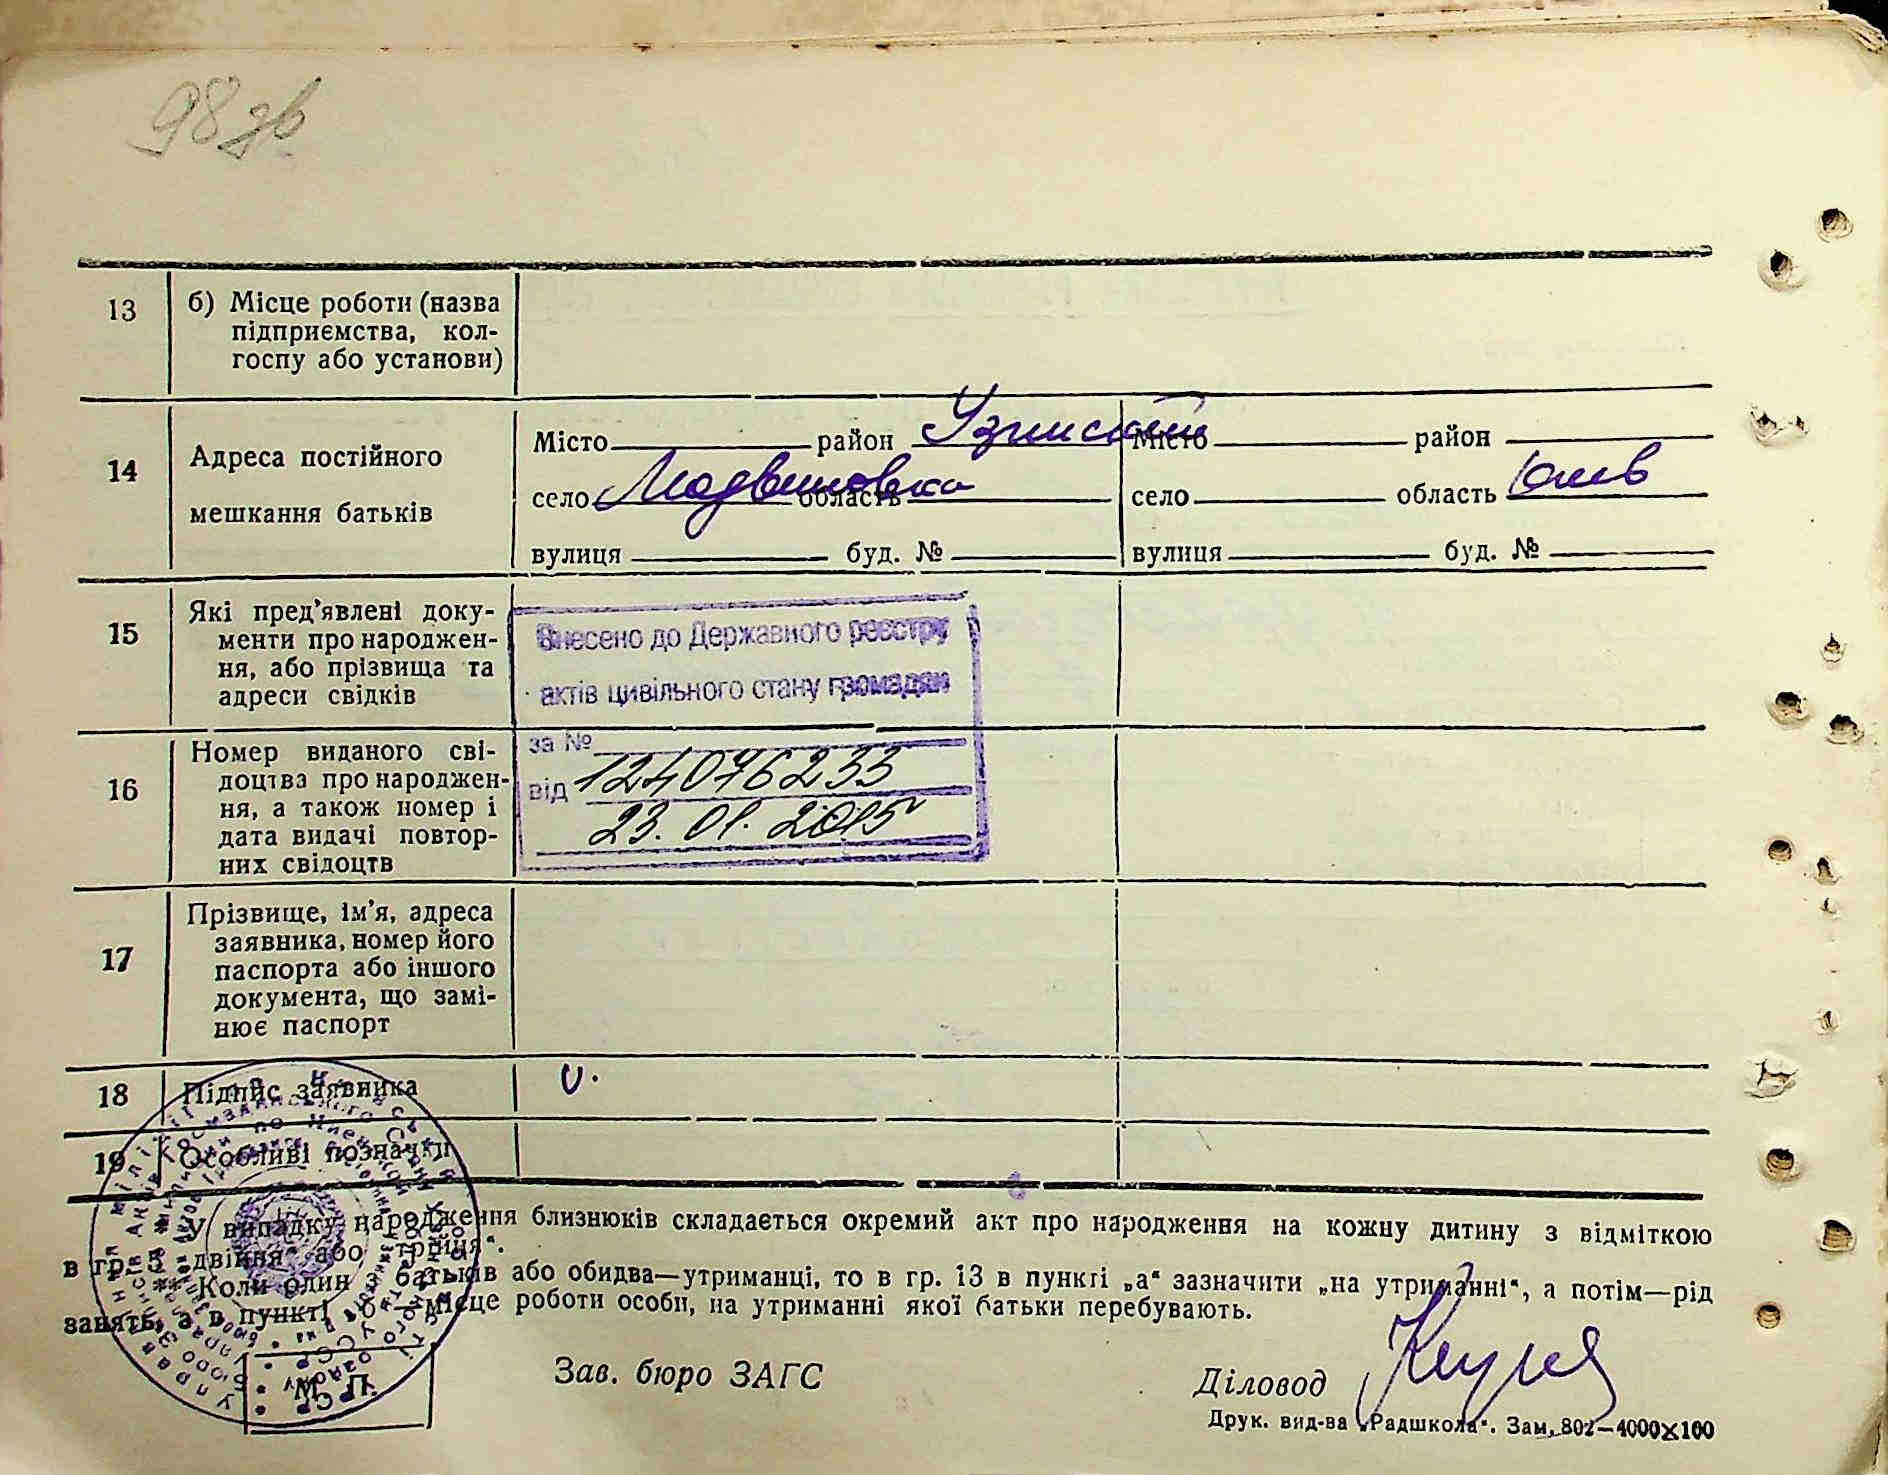 98 зв
13 б) Місце роботи (назва
підприємства, кол-
госпу або установи)
14 Адреса постійного
мешкання батьків
Місто район Узинський Місто район
село Мадвиновка область село область Киев
вулиця буд. № вулиця буд. №
15 Які пред'явлені доку-
менти про народжен-
ня, або прізвища та
адреси свідків
Внесено до Державного реєстру
актів цивільного стану громадян
за № 124076233
від 23.01.2015
16 Номер виданого сві-
доцтва про народжен-
ня, а також номер і
дата видачі повтор-
них свідоцтв
17 Прізвище, ім'я, адреса
заявника, номер його
паспорта або іншого
документа, що замі-
нює паспорт
18 Підпис заявника
19 Особливі позначки
* У випадку народження близнюків складається окремий акт про народження на кожну дитину з відміткою
в гр. 5 „двійня“ або „трійня“.
** Коли один з батьків або обидва—утриманці, то в гр. 13 в пункті „а“ зазначити „на утриманні“, а потім—рід
занять, а в пункті „б“—місце роботи особи, на утриманні якої батьки перебувають.
М. П.
Зав. бюро ЗАГС Діловод
Друк. вид-ва „Радшкола“. Зам. 802—4000×100